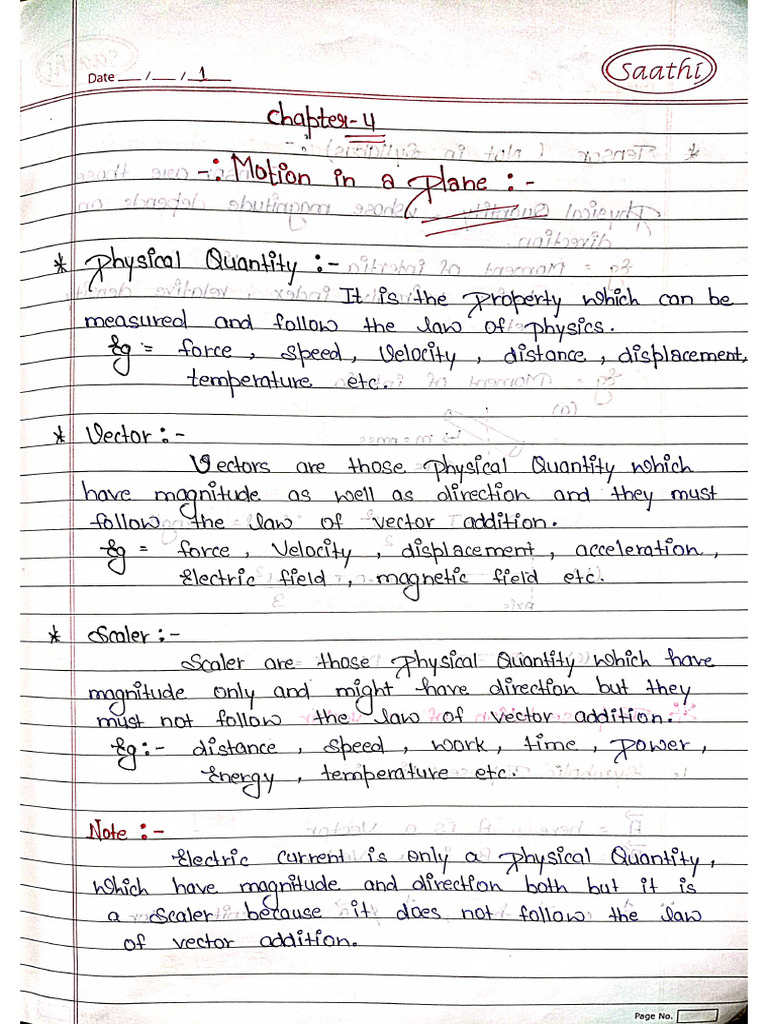 Date __/__/ 1
Saathi
Chapter-4
-: Motion in a Plane :-
* Physical Quantity :-
It is the Property which can be
measured and follow the law of Physics.
Eg = force, speed, Velocity, distance, displacement,
temperature etc.
* Vector :-
Vectors are those Physical Quantity which
have magnitude as well as direction and they must
follow the law of vector addition.
Eg = force, Velocity, displacement, acceleration,
Electric field, magnetic field etc.
* Scaler :-
Scaler are those Physical Quantity which have
magnitude only and might have direction but they
must not follow the law of vector addition.
Eg :- distance, speed, work, time, Power,
Energy, temperature etc.
Note :-
Electric current is only a Physical Quantity,
which have magnitude and direction both but it is
a scaler because it does not follow the law
of vector addition.
Page No.